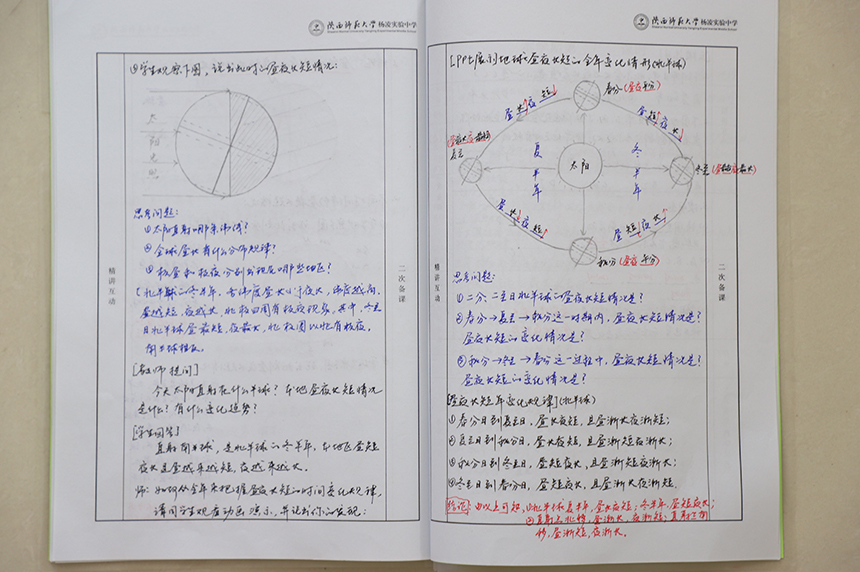 陕西师范大学杨凌实验中学
④学生观察下图，说出此时的昼夜长短情况：
太
阳
光
照
思考问题：
①太阳直射哪条纬线？
②全球昼长有什么分布规律？
③极昼和极夜分别出现在哪些地区？
（北半球的冬半年，各纬度昼长小于夜长，纬度越高，
昼越短，夜越长，北极四周有极夜现象。其中，冬至
日北半球昼最短，夜最长，北极圈以北有极夜，
南半球相反。
[教师提问]
今天太阳直射在什么半球？本地昼夜长短情况
是什么？有什么变化趋势？
[学生回答]
直射南半球，是北半球的冬半年，本地区昼短
夜长且昼越来越短，夜越来越长。
师：如何从全年来把握昼夜长短的时间变化规律，
请同学生观看动画演示，并说出你的发现：
精讲互动
二次备课
陕西师范大学杨凌实验中学
[PPt展示]地球昼夜长短的全年变化情形(北半球)
春分(昼夜平分)
昼长↑夜短↓
昼短↑夜长↓
夏至
夏半年
太阳
冬半年
冬至(昼最短夜最长)
昼长↓夜短↑
昼短↓夜长↑
秋分(昼夜平分)
思考问题：
①二分、二至日北半球的昼夜长短情况是？
②春分→夏至→秋分这一时期内，昼夜长短情况是？
昼夜长短的变化情况是？
③秋分→冬至→春分这一过程中，昼夜长短情况是？
昼夜长短的变化情况是？
[昼夜长短年变化规律](北半球)
①春分日到夏至日，昼长夜短，且昼渐长夜渐短；
②夏至日到秋分日，昼长夜短，且昼渐短夜渐长；
③秋分日到冬至日，昼短夜长，且昼渐短夜渐长；
④冬至日到春分日，昼短夜长，且昼渐长夜渐短。
结论：由以上可知，①北半球夏半年，昼长夜短；冬半年，昼短夜长；
②直射点北移，昼渐长，夜渐短；直射点南
移，昼渐短，夜渐长。
精讲互动
二次备课